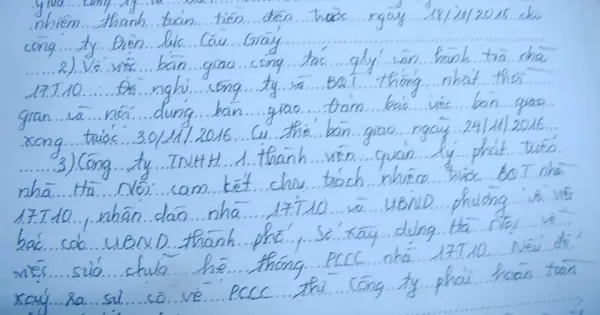 nhiệm thanh toán tiền điện trước ngày 18/11/2016 cho
công ty Điện lực Cầu Giấy
2) Về việc bàn giao công tác qlý vận hành toà nhà
17T10. Đề nghị công ty và BQT thống nhất thời
gian và nội dung bàn giao. Đảm bảo việc bàn giao
xong trước 30/11/2016. Cụ thể bàn giao ngày 24/11/2016.
3) Công ty TNHH 1 thành viên quản lý phát triển
nhà Hà Nội cam kết chịu trách nhiệm trước BQT nhà
17T10, nhân dân nhà 17T10 và UBND phường về việc
báo cáo UBND thành phố, Sở xây dựng Hà Nội về
việc sửa chữa hệ thống PCCC nhà 17T10. Nếu để
xảy ra sự cố về PCCC thì công ty phải hoàn toàn